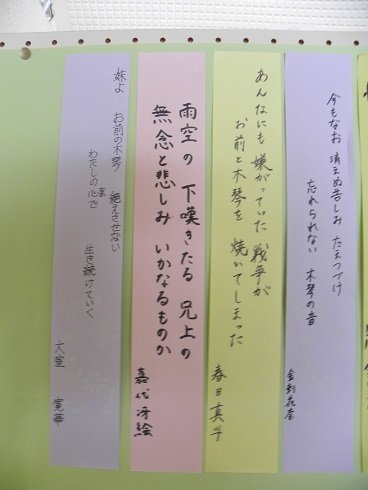 今もなお 消えぬ苦しみ たえつづけ
忘れられない 木琴の音
あんなにも 嫌がっていた 戦争が
お前と木琴を 焼いてしまった
春日真
雨空の 下嘆きたる 兄上の
無念と悲しみ いかなるものか
嘉代 冴絵
妹よ お前の木琴 絶えさせない
わたしの心で 生き続けていく
大室 寛華